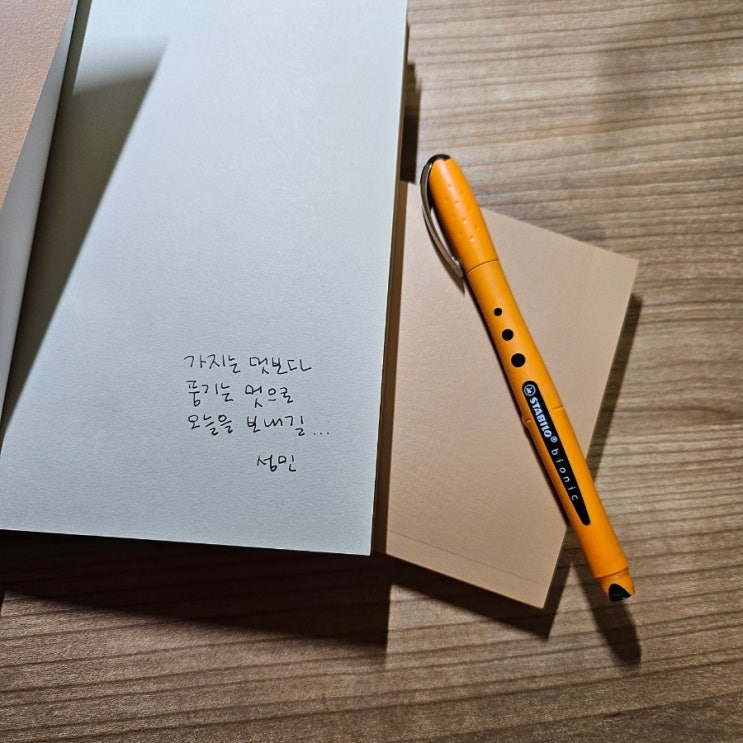 가지는 멋보다
풍기는 멋으로
오늘을 보내길...
성민
STABILO® bionic